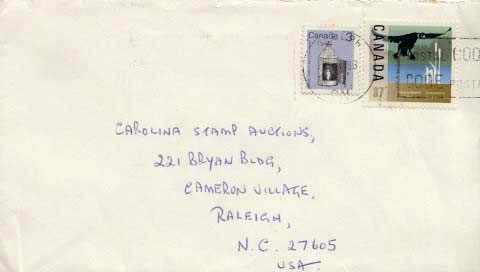 Canada 3
CANADA 37
POSTAL CODE
CODE POSTAL
CAROLINA STAMP AUCTIONS,
221 BRYAN BLDG,
CAMERON VILLAGE,
RALEIGH,
N.C. 27605
USA